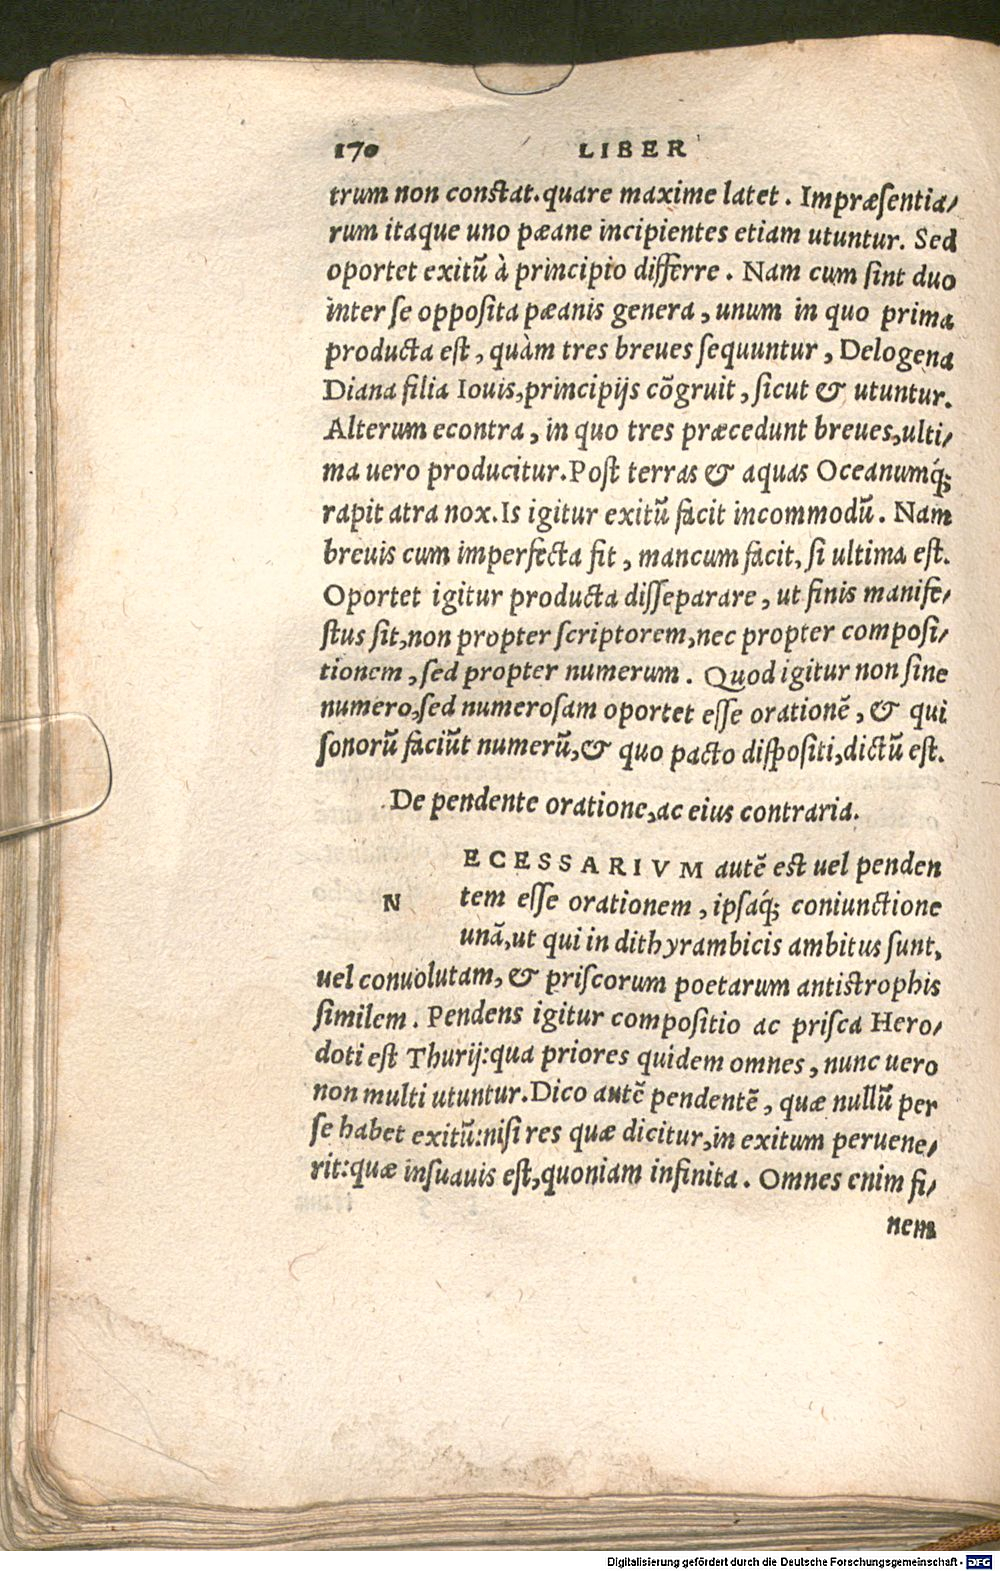 170 LIBER
trum non constat. quare maxime latet. Impræsentia/
rum itaque uno pæane incipientes etiam utuntur. Sed
oportet exitũ à principio differre. Nam cum sint duo
inter se opposita pæanis genera, unum in quo prima
producta est, quàm tres breues sequuntur, Delogena
Diana filia Iouis, principijs cõgruit, sicut & utuntur.
Alterum econtra, in quo tres præcedunt breues, ulti/
ma uero producitur. Post terras & aquas Oceanumq́;
rapit atra nox. Is igitur exitũ facit incommodũ. Nam
breuis cum imperfecta fit, mancum facit, si ultima est.
Oportet igitur producta disseparare, ut finis manife/
stus sit, non propter scriptorem, nec propter composi/
tionem, sed propter numerum. Quod igitur non sine
numero, sed numerosam oportet esse orationẽ, & qui
sonorũ faciũt numerũ, & quo pacto dispositi, dictũ est.
De pendente oratione, ac eius contraria.
NECESSARIVM autẽ est uel penden
tem esse orationem, ipsaq́; coniunctione
unã, ut qui in dithyrambicis ambitus sunt,
uel conuolutam, & priscorum poetarum antistrophis
similem. Pendens igitur compositio ac prisca Hero/
doti est Thurij: qua priores quidem omnes, nunc uero
non multi utuntur. Dico autẽ pendentẽ, quæ nullũ per
se habet exitũ: nisi res quæ dicitur, in exitum peruene/
rit: quæ insuauis est, quoniam infinita. Omnes enim fi/
nem
Digitalisierung gefördert durch die Deutsche Forschungsgemeinschaft - DFG